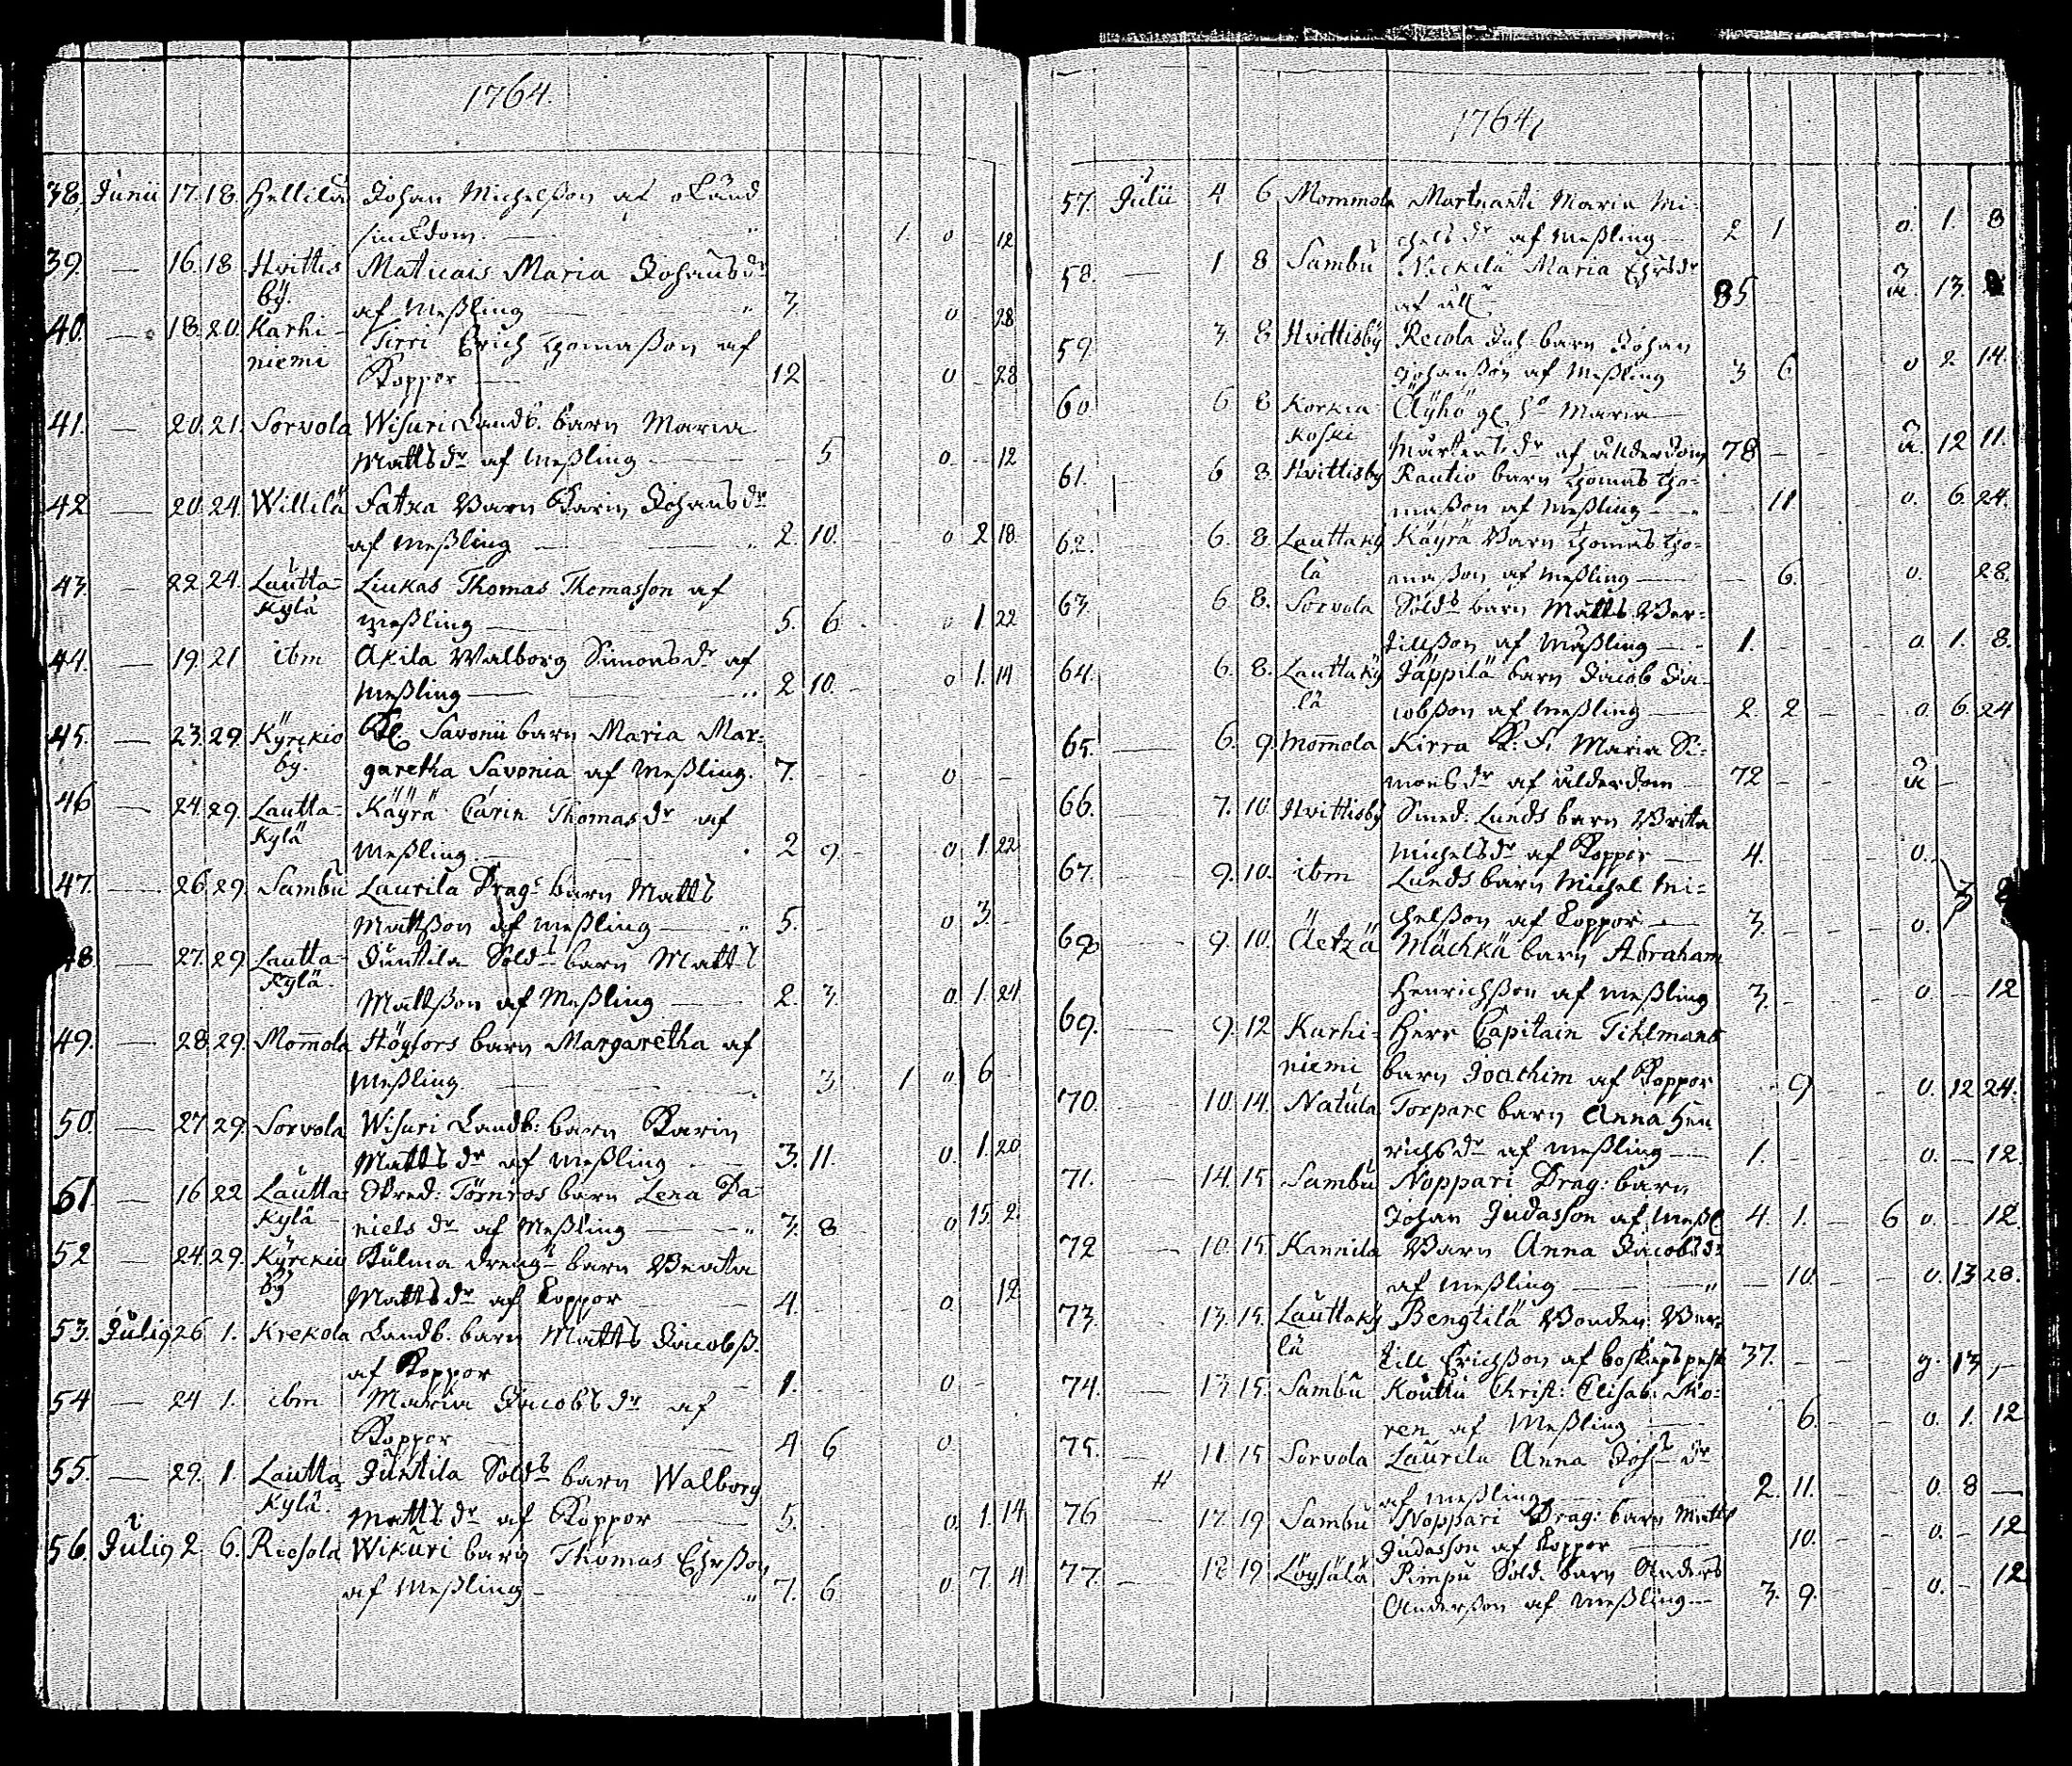 1764.
38. Junii 17. 18. Hellilä Johan Michelßon af okänd
siuckdom. 1. 0 12
39. — 16. 18 Hvittis Maticais Maria Johansdr
by. af Meßling 3 0 28
40. — 18. 20. Karhi- Tirri Erich Thomaßon af
niemi Koppor 12 0 28
41. — 20. 21. Sorvola Wisuri Landb. barn Maria
Mattsdr af Meßling 5 0 12
42 — 20. 24. Willilä Fatxa Barn Karin Johansdr
af Meßling 2. 10. 0 2 18
43. — 22. 24. Lautta- Liukas Thomas Thomasson af
Kylä Meßling 5. 6 0 1 22
44. — 19. 21 ibm Akila Walborg Simonsdr af
Meßling 2 10. 0 1. 14
45. — 23. 29. Kyrckio Kl. Savonii barn Maria Mar-
by. garetha Savonia af Meßling. 7. 0 —
46 — 24. 29. Lautta- Käyrä Carin Thomasdr af
Kylä Meßling 2 9. 0 1. 22
47. — 26. 29. Sambu Laurila Drags barn Matts
Mattßon af Meßling 5. 0 3 —
48. — 27. 29 Lautta- Juntila Solds barn Matts
Kylä. Mattßon af Meßling 2. 3. 0. 1. 24
49. — 28. 29. Mommola Högfors barn Margaretha af
Meßling. 3 1 0 6
50. — 27 29. Sorvola Wisuri Landb: barn Karin
Mattsdr af Meßling 3. 11. 0. 1. 20
51 — 16 22 Lautta- Skred: Törnros barn Lena Da-
Kylä nielsdr af Meßling 3. 8 0 15. 2.
52 — 24. 29. Kyrckio Kulma drengs barn Beata
by Mattsdr af Koppor 4. 0 12
53. Julig 26 1. Krekola Landb. barn Matts Jacobß.
af Koppor 1. 0 —
54 — 24 1. ibm Maria Jacobsdr af
Koppor 4 6 0.
55. — 29. 1. Lautta- Juntila Solds barn Walborg
Kylä. Mattsdr af Koppor 5. 0. 1. 14
56. Julig 2 6. Riesola Wikuri barn Thomas Ehrßon
af Meßling 7. 6 0 7 4
1764
57. Julii 4 6 Mommola Martnanti Maria Mi-
chelsdr af Meßling 2 1 0. 1. 8
58. — 1 8 Sambu Nickilä Maria Ehrsdr
af åll 85 å. 13.
59. 3 8 Hvittisby Recola Joh. barn Johan
Johanßon af Meßling 3 6 0 2 14.
60 6 8 Korkia- Äyhö gl. Ho Maria
Koski Mårtensdr af ållderdom 78 å. 12 11.
61. 6 8. Hvittisby Rautio barn Thomas Tho-
maßon af Meßling 11 0. 6. 24.
62. 6. 8. Lauttaky Käyrä Barn Thomas Tho-
lä maßon af Meßling 6. 0. 28.
63. 6 8. Sorvola Solds barn Matts Ber-
tillßon af Mäßling 1. 0. 1. 8.
64. 6. 8. Lauttaky Jäppilä barn Jacob Ja-
lä cobßon af Meßling 2. 2 0. 6. 24
65. — 6. 9. Mommola Kirra K: F. Maria Si-
monsdr af ålderdom 72 å —
66. 7. 10 Hvittisby Smed: Lunds barn Britta
Michelsdr af Koppor 4. 0.
67. — 9. 10. ibm Lunds barn Michel Mi-
chelßon af Koppor 3 0.
68 — 9. 10. Äetzä Mächkä barn Abraham
Henrichßon af Meßling 3. 0. — 12
69. — 9. 12 Karhi- Herr Capitain Tihlmans
niemi barn Joachim af Koppor 9 0. 12 24.
70. 10. 14. Natula Torpare barn Anna Hen
richsdr af Meßling 1. 0. — 12.
71. 14. 15 Sambu Noppari Drag: barn
Johan Judasson af Meßl 4. 1. — 6 0. — 12.
72 — 10. 15. Kannila Barn Anna Jacobsdr
af Meßling 10. 0. 13 28.
73. — 13. 15. Lauttaky Bengtilä Bonden Ber-
lä till Erichßon af boskapspest 37. g. 13, —
74. — 13. 15. Sambu Kouttu Christ: Elisab: Mo-
ren af Meßling 6. 0. 1. 12
75. — 11. 15 Sorvola Laurila Anna Johsdr
af Meßling 2. 11. 0. 8 —
76 — 17. 19 Sambu Noppari Drag: barn Matts
Judasson af Koppor 10. 0. — 12
77. — 18 19 Löysälä Rimpu Sold. barn Anders
Anderßon af Meßling 3. 9. 0. — 12